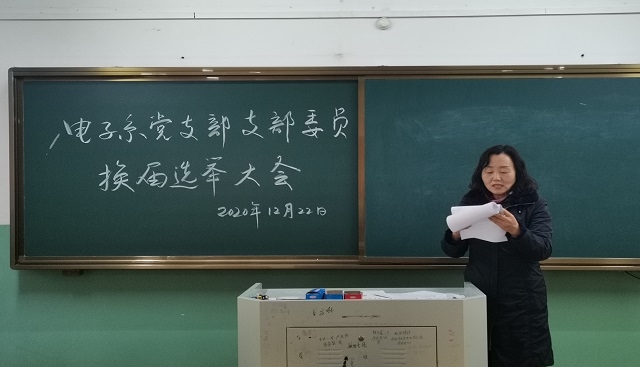 电子系党支部支部委员
换届选举大会
2020年12月22日